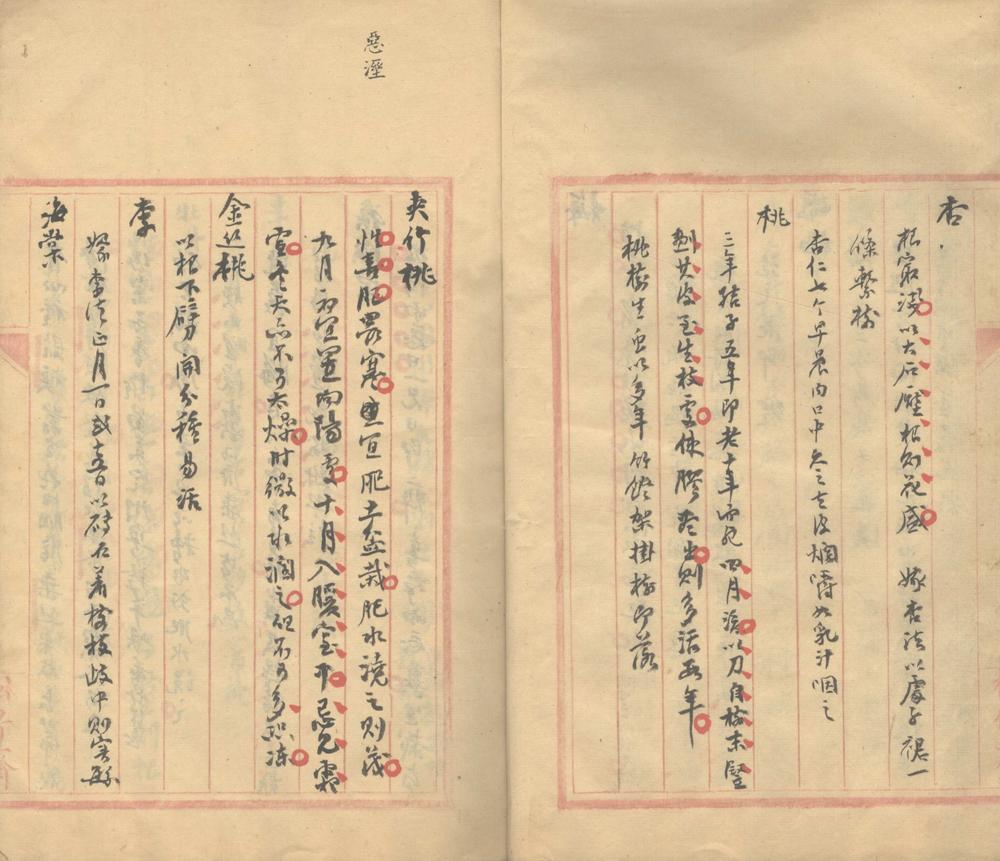 杏
根宻淺以大石壓根則花盛　嫁杏法以處子裙一
條繫樹
杏仁七个早晨內口中久之去皮烟嚼如乳汁咽之
桃
三年結子五年即老十年而死四月淺以刀自樹本豎
劙其皮至生枝處使膠盡出則多活數年
桃樹生虫以多年竹燈架掛樹即落
夾竹桃
惡溼
性喜肥畏寒宜肥土盆栽肥水澆之則茂
九月初宜置向陽處十月入暖室中忌見霜
雪冬天亦不可太燥时微以水潤之但不可多恐凍
金絲桃
以根下劈開分種易活
李
嫁李法正月一日或十五日以磚石着樹枝歧中則實繁
海棠